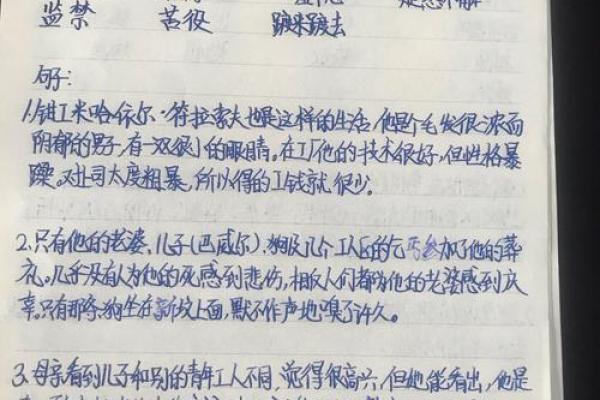 监禁 苦役 踱来踱去
句子:
1.钳工米哈依尔·符拉索夫也是这样的生活,他是个毛发很浓而
阴郁的男子,有一双很小的眼睛。在工厂他的技术很好,但性格暴
躁。对上司大度粗暴,所以得的工钱就很少。
2.只有他的老婆、儿子(巴威尔),狗及几个工人区的乞丐参加了他的葬
礼。几乎没有人为他的死感到悲伤,相反人们都为他的老婆感到庆
幸。只有那条狗坐在新坟上面,默不作声地嗅了许久。
3.母亲看到儿子和别的青年工人不同,觉得很高兴,但她能看出,他是